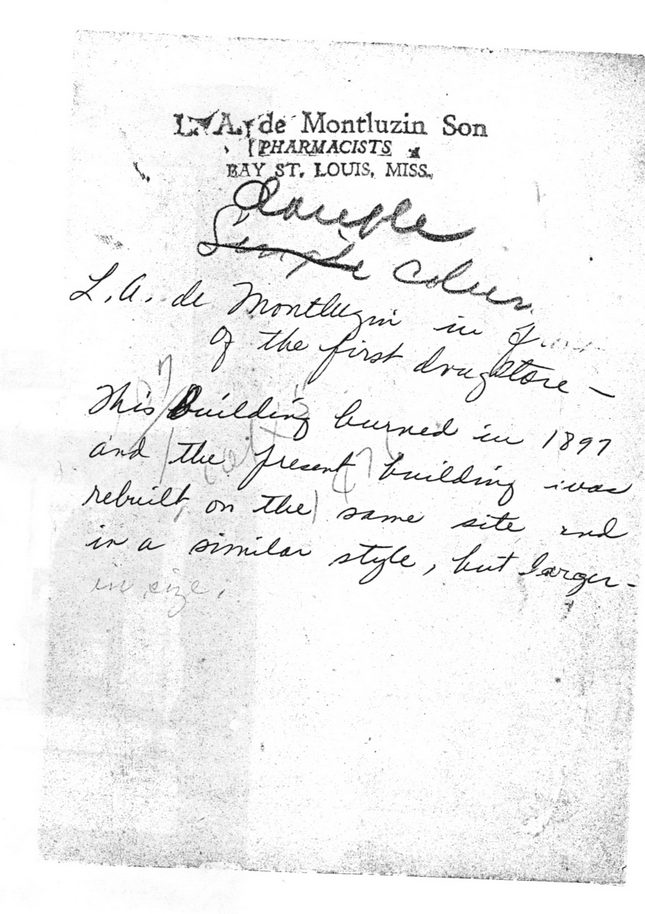 L. A. de Montluzin Son
PHARMACISTS
BAY ST. LOUIS, MISS.
Double
Single Column
L. A. de Montluzin in
of the first drugstore —
This building burned in 1897
and the present building was
rebuilt on the same site and
in a similar style, but larger -
in size.